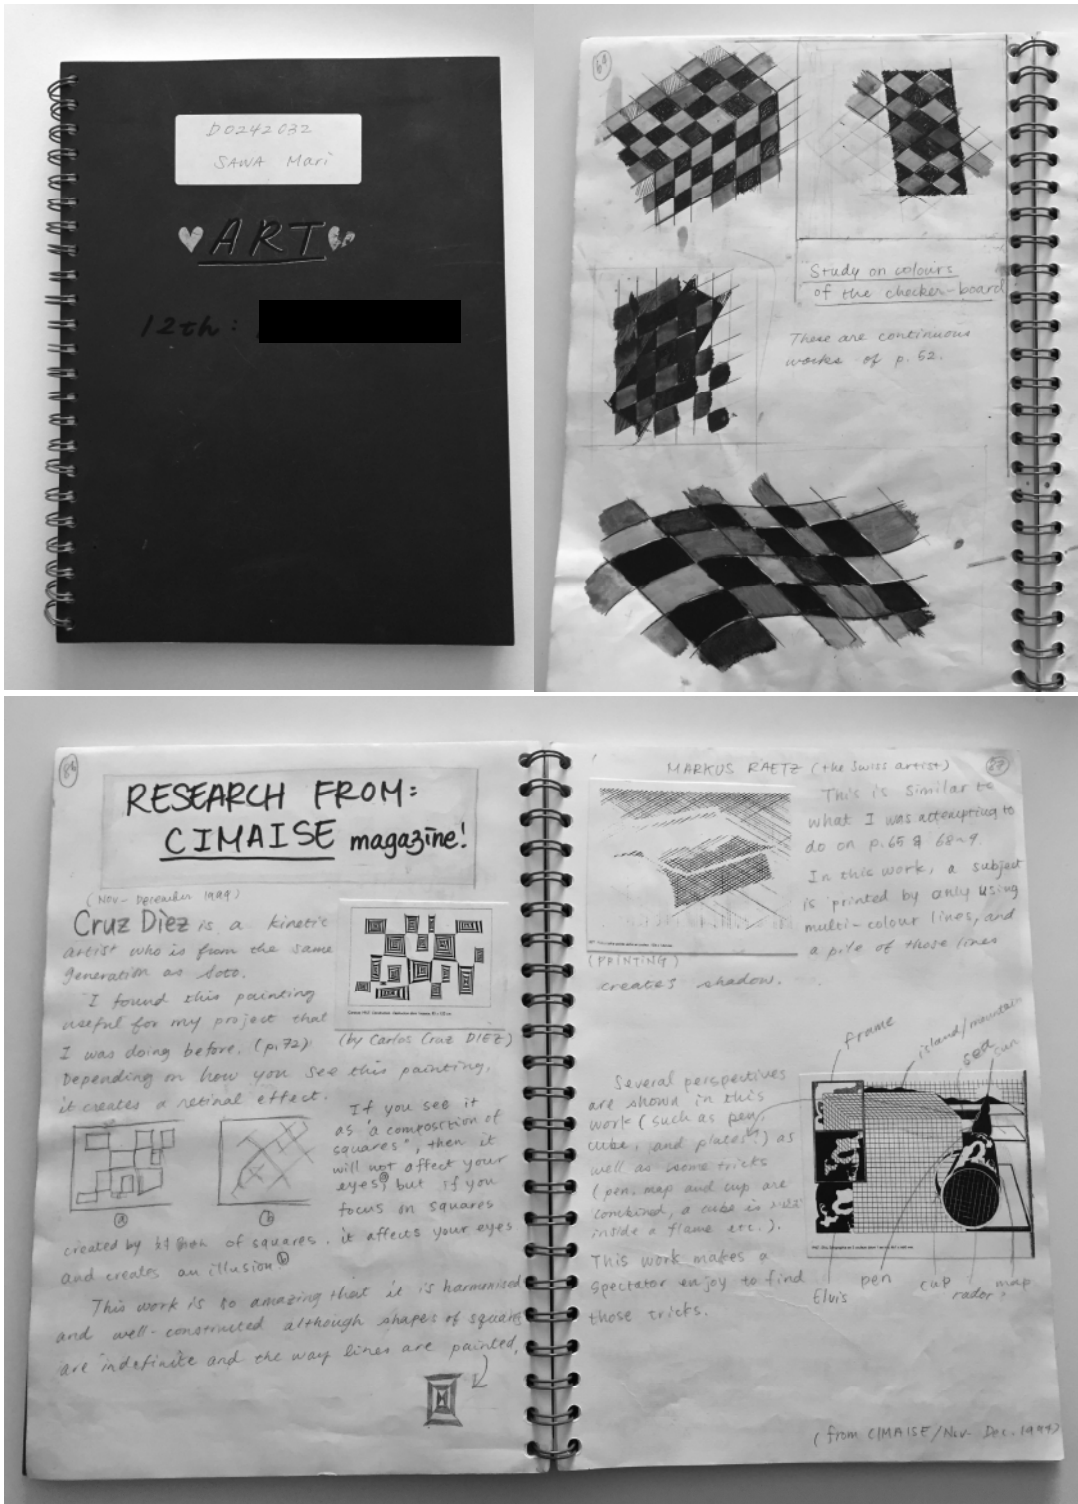 D0242032
SAWA Mari
ART
12th:
69
Study on colours
of the checker-board
These are continuous
works of p. 62.
86
RESEARCH FROM:
CIMAISE magazine!
(Nov- December 1994)
Cruz Dìez is a kinetic
artist who is from the same
generation as Soto.
I found this painting
useful for my project that
I was doing before. (p.72)
(by Carlos Cruz DIEZ)
Depending on how you see this painting,
it creates a retinal effect.
If you see it
as "a composition of
squares", then it
will not affect your
eyes ⓐ but if you
focus on squares
ⓐ
ⓑ
created by of squares, it affects your eyes
and creates an illusion ⓑ
This work is so amazing that it is harmonised
and well-constructed although shapes of squares
are indefinite and the way lines are painted,
87
MARKUS RAETZ (the Swiss artist)
This is similar to
what I was attempting to
do on p.65 & 68~9.
In this work, a subject
is printed by only using
multi-colour lines, and
a pile of those lines
(PRINTING)
creates shadow.
frame
island/mountain
sea
sun
Several perspectives
are shown in this
work (such as pen,
cube, and plates) as
well as some tricks
(pen, map and cup are
combined, a cube is
inside a flame etc.).
This work makes a
spectator enjoy to find
those tricks.
Elvis
pen
cup
rador?
map
(from CIMAISE/Nov- Dec. 1994)